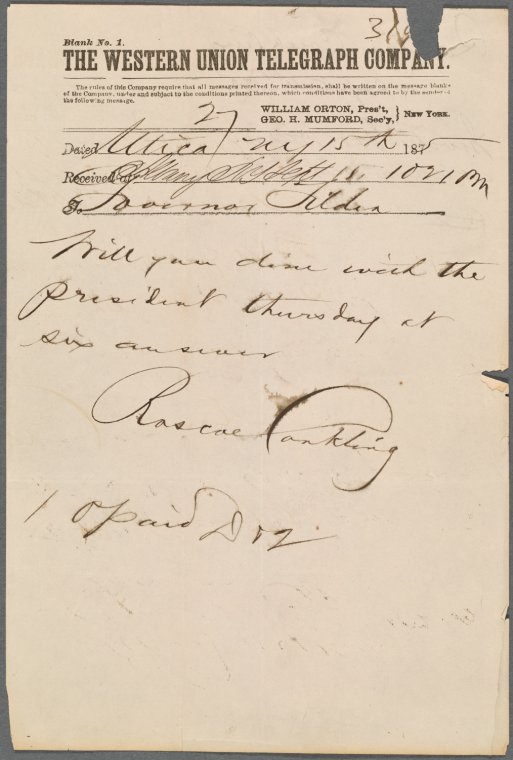 Blank No. 1.
THE WESTERN UNION TELEGRAPH COMPANY.
The rules of this Company require that all messages received for transmission, shall be written on the message blanks
of the Company, under and subject to the conditions printed thereon, which conditions have been agreed to by the sender of
the following message.
27
WILLIAM ORTON, Pres't,
GEO. H. MUMFORD, Sec'y,
NEW YORK.
Dated Utica NY 15th 1875
Received at Albany Sept 15 PM
To Governor Tilden
Will you dine with the
president thursday at
six answer
Roscoe Conkling
10 paid